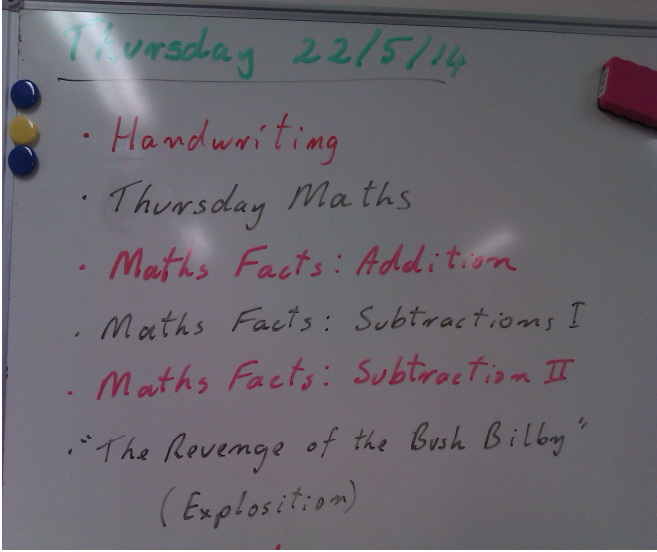 Thursday 22/5/14
· Handwriting
· Thursday Maths
· Maths Facts: Addition
· Maths Facts: Subtractions I
· Maths Facts: Subtraction II
· "The Revenge of the Bush Bilby"
(Explosition)